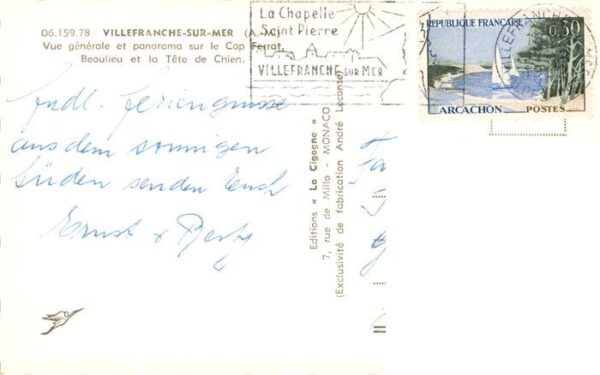 06.159.78 VILLEFRANCHE-SUR-MER (A.-M.)
Vue générale et panorama sur le Cap Ferrat,
Beaulieu et la Tête de Chien.
La Chapelle
Saint Pierre
VILLEFRANCHE SUR MER
RÉPUBLIQUE FRANÇAISE
0,30
ARCACHON POSTES
VILLEFRANCHE
frdl. Feriengrüsse
aus dem sonnigen
Süden senden Euch
Ernst &
Editions « La Cigogne »
7, rue de Millo - MONACO
(Exclusivité de fabrication André Leconte)